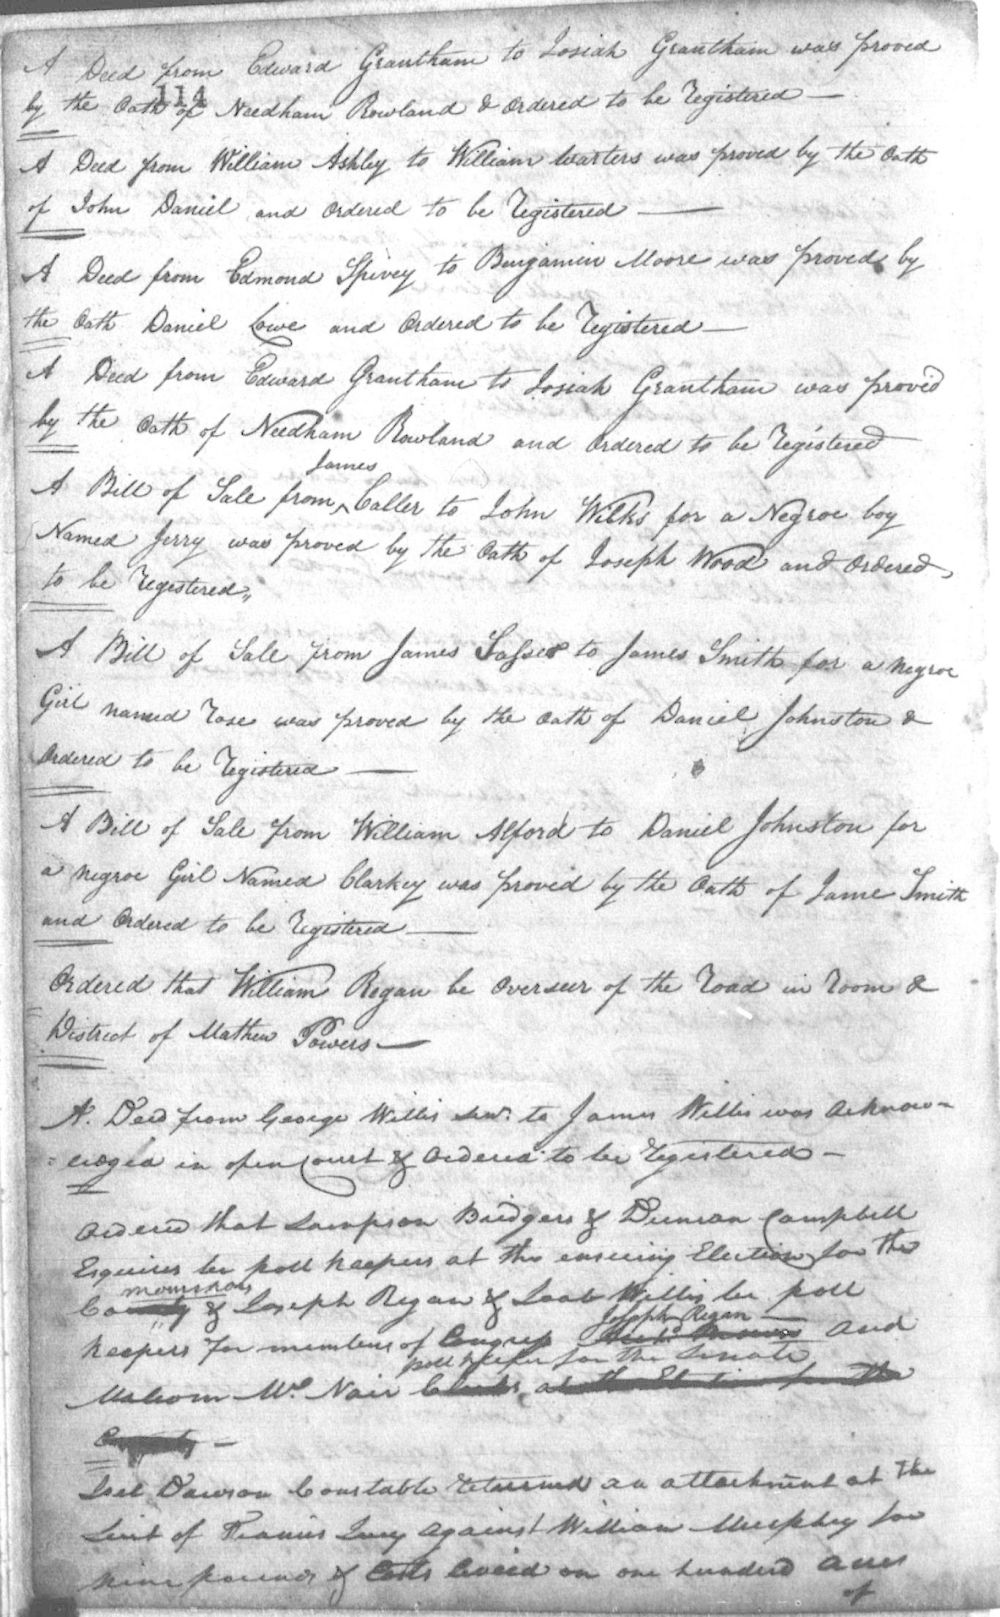 A Deed from Edward Grantham to Josiah Grantham was proved
114
by the Oath of Needham Rowland & Ordered to be Registered —
A Deed from William Ashley to William Warters was proved by the Oath
of John Daniel and Ordered to be Registered —
A Deed from Edmond Spivey to Benjamin Moore was proved by
the Oath Daniel Lowe and Ordered to be Registered —
A Deed from Edward Grantham to Josiah Grantham was proved
by the Oath of Needham Rowland and Ordered to be Registered
James
A Bill of Sale from ^ Caller to John Wilks for a Negroe boy
Named Jerry was proved by the Oath of Joseph Wood and Ordered,
to be Registered,,
A Bill of Sale from James Sasser to James Smith for a negroe
Girl named Rose was proved by the Oath of Daniel Johnston &
Ordered to be Registered —
A Bill of Sale from William Alford to Daniel Johnston for
a negroe Girl Named Clarkey was proved by the Oath of Jame Smith
and Ordered to be Registered —
Ordered that William Regan be Overseer of the Road in Room &
District of Mathew Powers —
A Deed from George Willis senr. to James Willis was Acknow-
ledged in open Court & Ordered to be Registered —
Ordered that Sampson Bridgers & Duncan Campbell
Esquires be poll keepers at the ensuing Election for the
Commons
& Joseph Regan & Willis be poll
Joseph Regan
keepers for members of Congress and
poll keeper for the Senate
Malcom Mc. Nair at the Election for the
Joel Dawson Constable Returned an attachment at the
Suit of Francis against William Murphey for
nine pounds & Costs levied on one hundred Acres
of